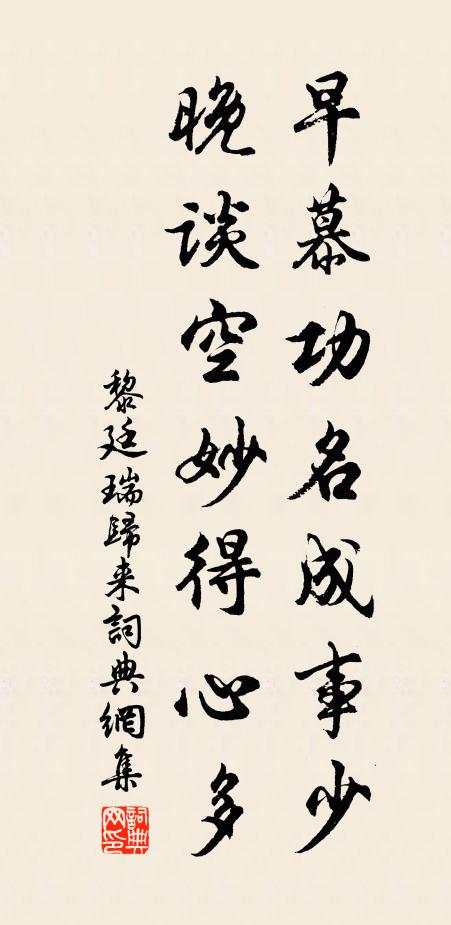 早慕功名成事少
晚谈空妙得心多
黎廷瑞歸来詞典網集
詞典网印